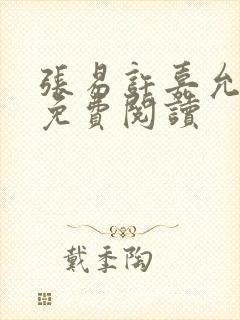 張易許嘉允
免費閱讀
戴季陶